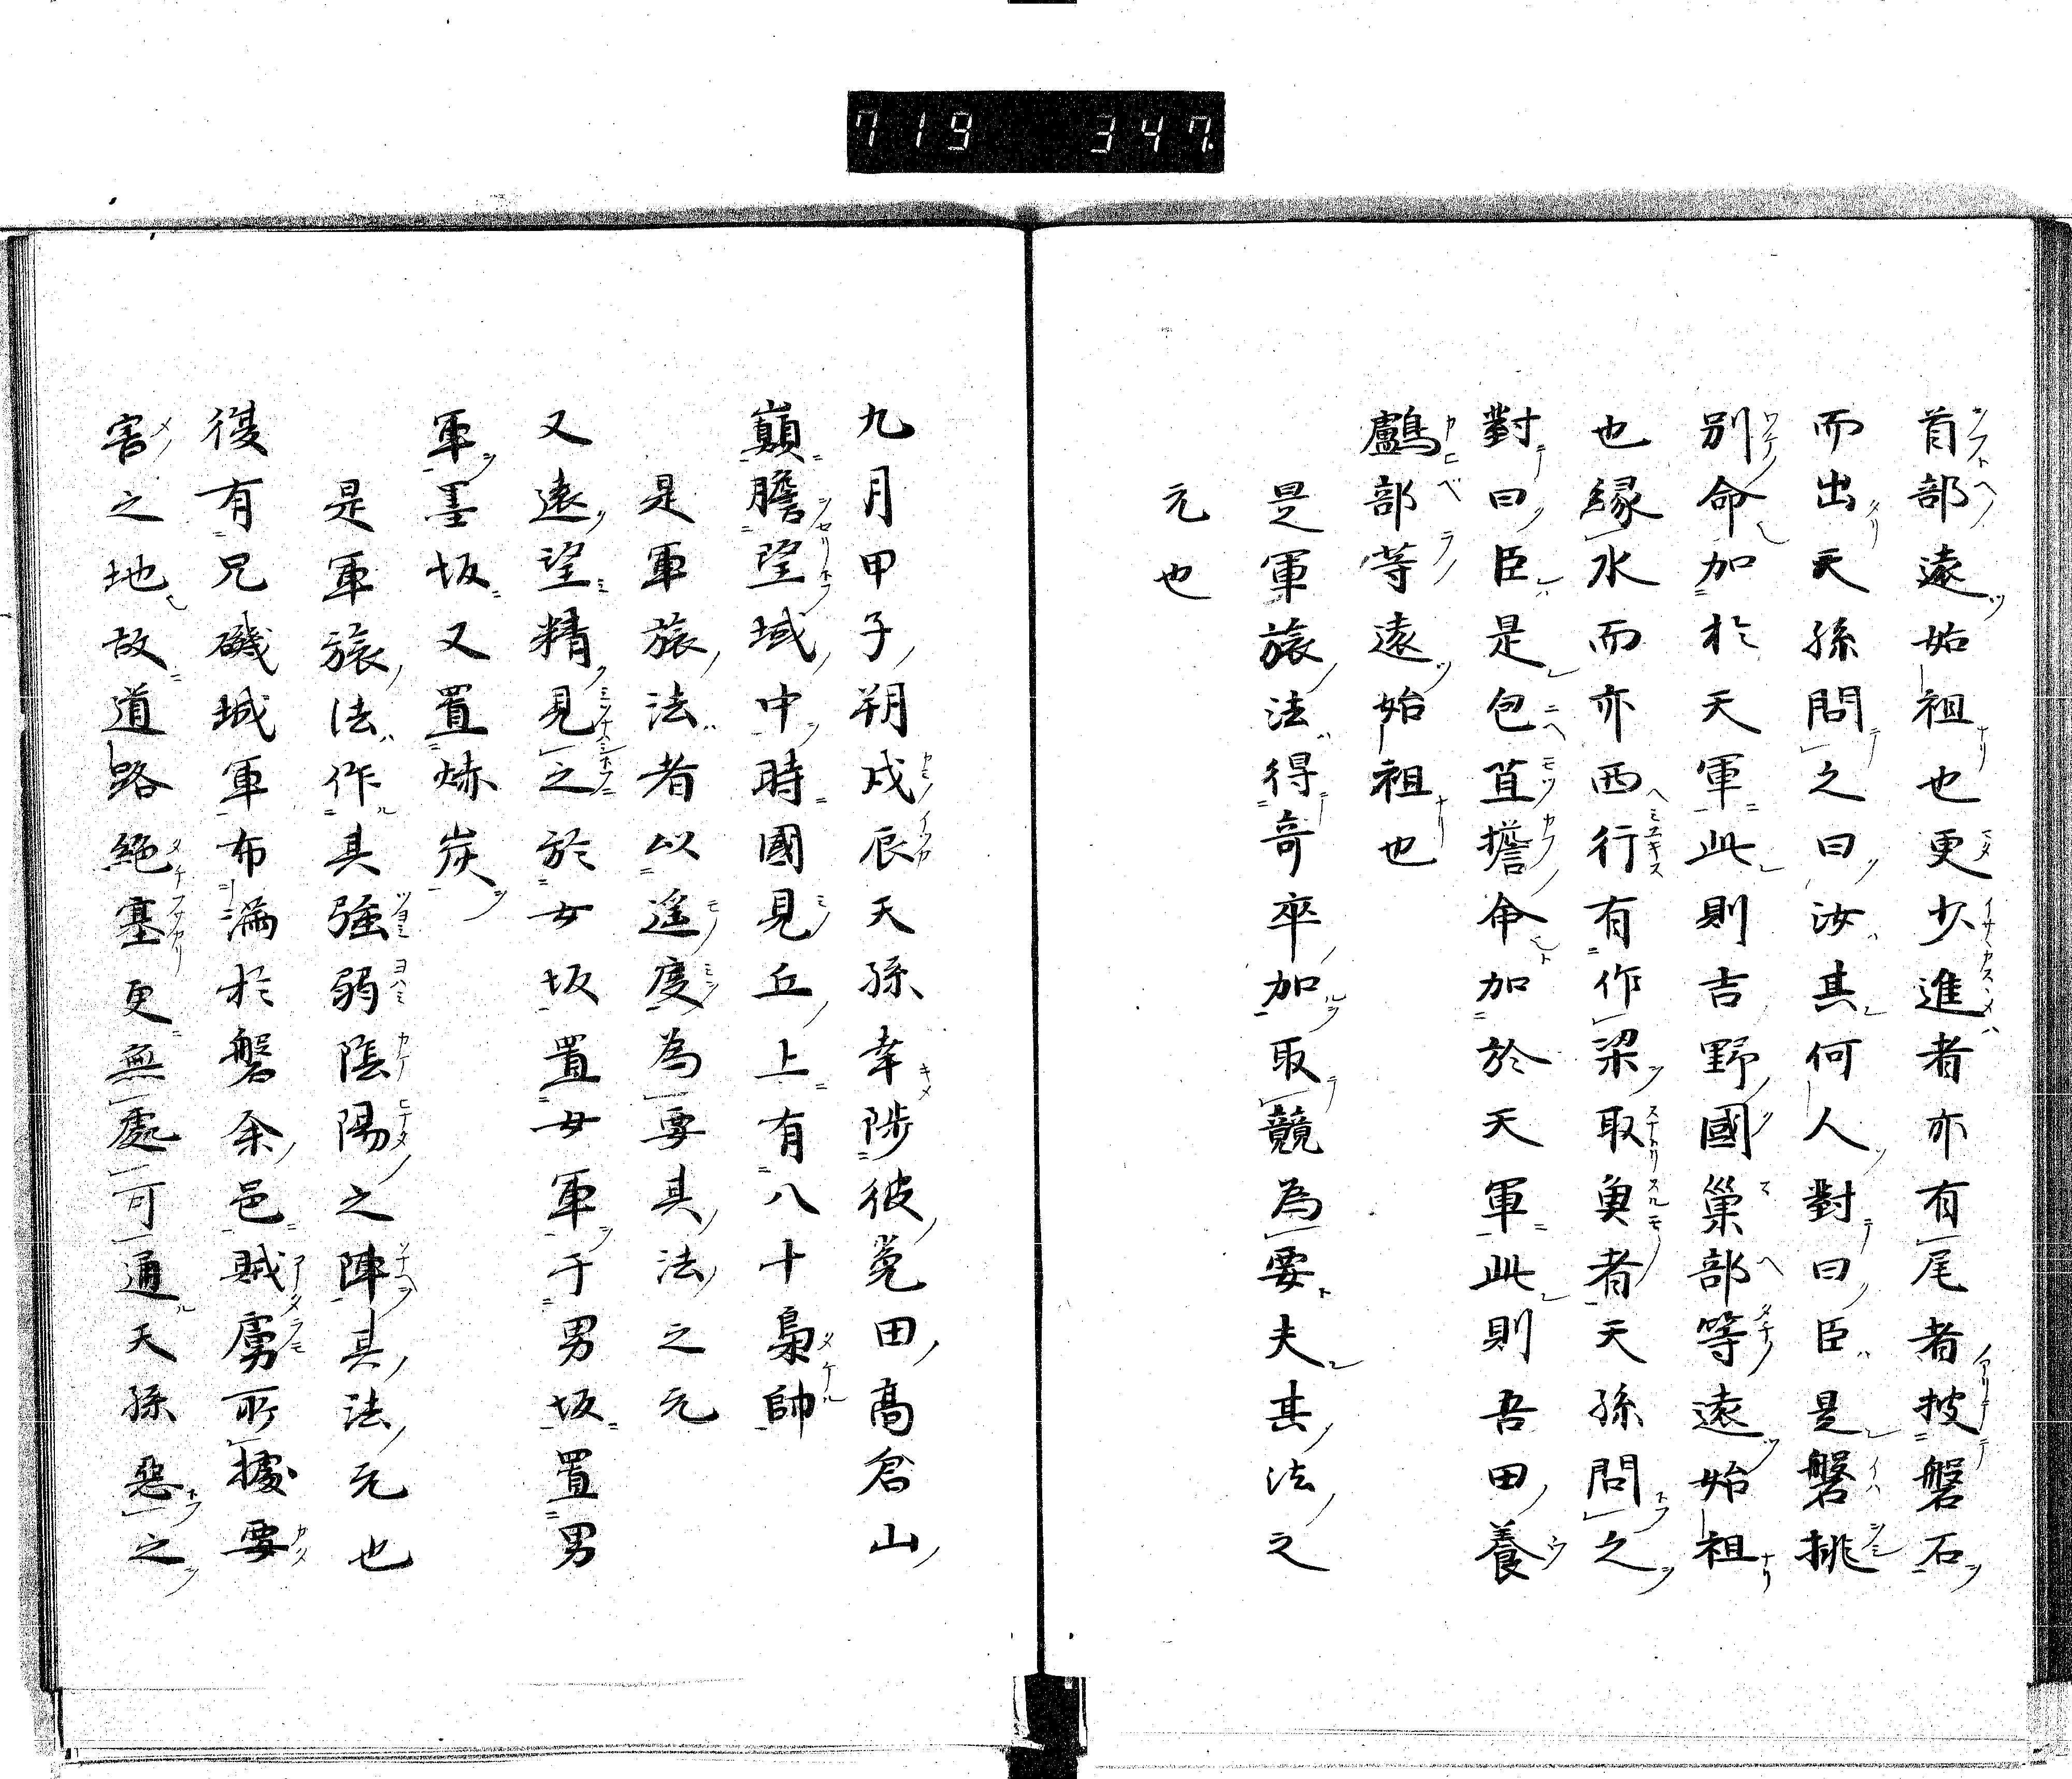 719 347.
首部遠始祖也更少進者亦有尾者披磐石
而出天孫問之曰汝其何人對曰臣是磐挑
別命加於天軍此則吉野國巢部等遠始祖
也縁水而亦西行有作梁取魚者天孫問之
對曰臣是包苴擔命加於天軍此則吾田養
鸕部等遠始祖也
是軍旅法得奇卒加取競為要夫其法之
元也
九月甲子朔戊辰天孫幸陟彼菟田高倉山
巔瞻望域中時國見丘上有八十梟帥
是軍旅法者以遥度為要其法之元
又遠望精見之於女坂置女軍于男坂置男
軍墨坂又置焃炭
是軍旅法作其強弱陰陽之陣其法元也
復有兄磯城軍布滿於磐余邑賊虜所據要
害之地故道路絶塞更無處可通天孫惡之